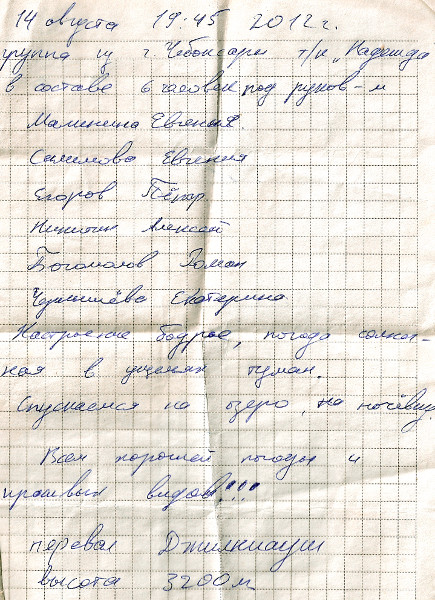 14 августа 19:45 2012 г.
группа из г. Чебоксары т/к "Надежда
в составе 6 человек под руков-м
Малинина Евгения.
Салимова Евгения
Егоров Пётр
Никитин Алексей
Богомолов Роман
Чернышёва Екатерина
Настроение бодрое, погода солнеч-
ная в ущельях туман.
Спускаемся на озеро, на ночёвку.
Всем хорошей погоды и
красивых видов!!!
перевал Джилкиауш
высота 3200м